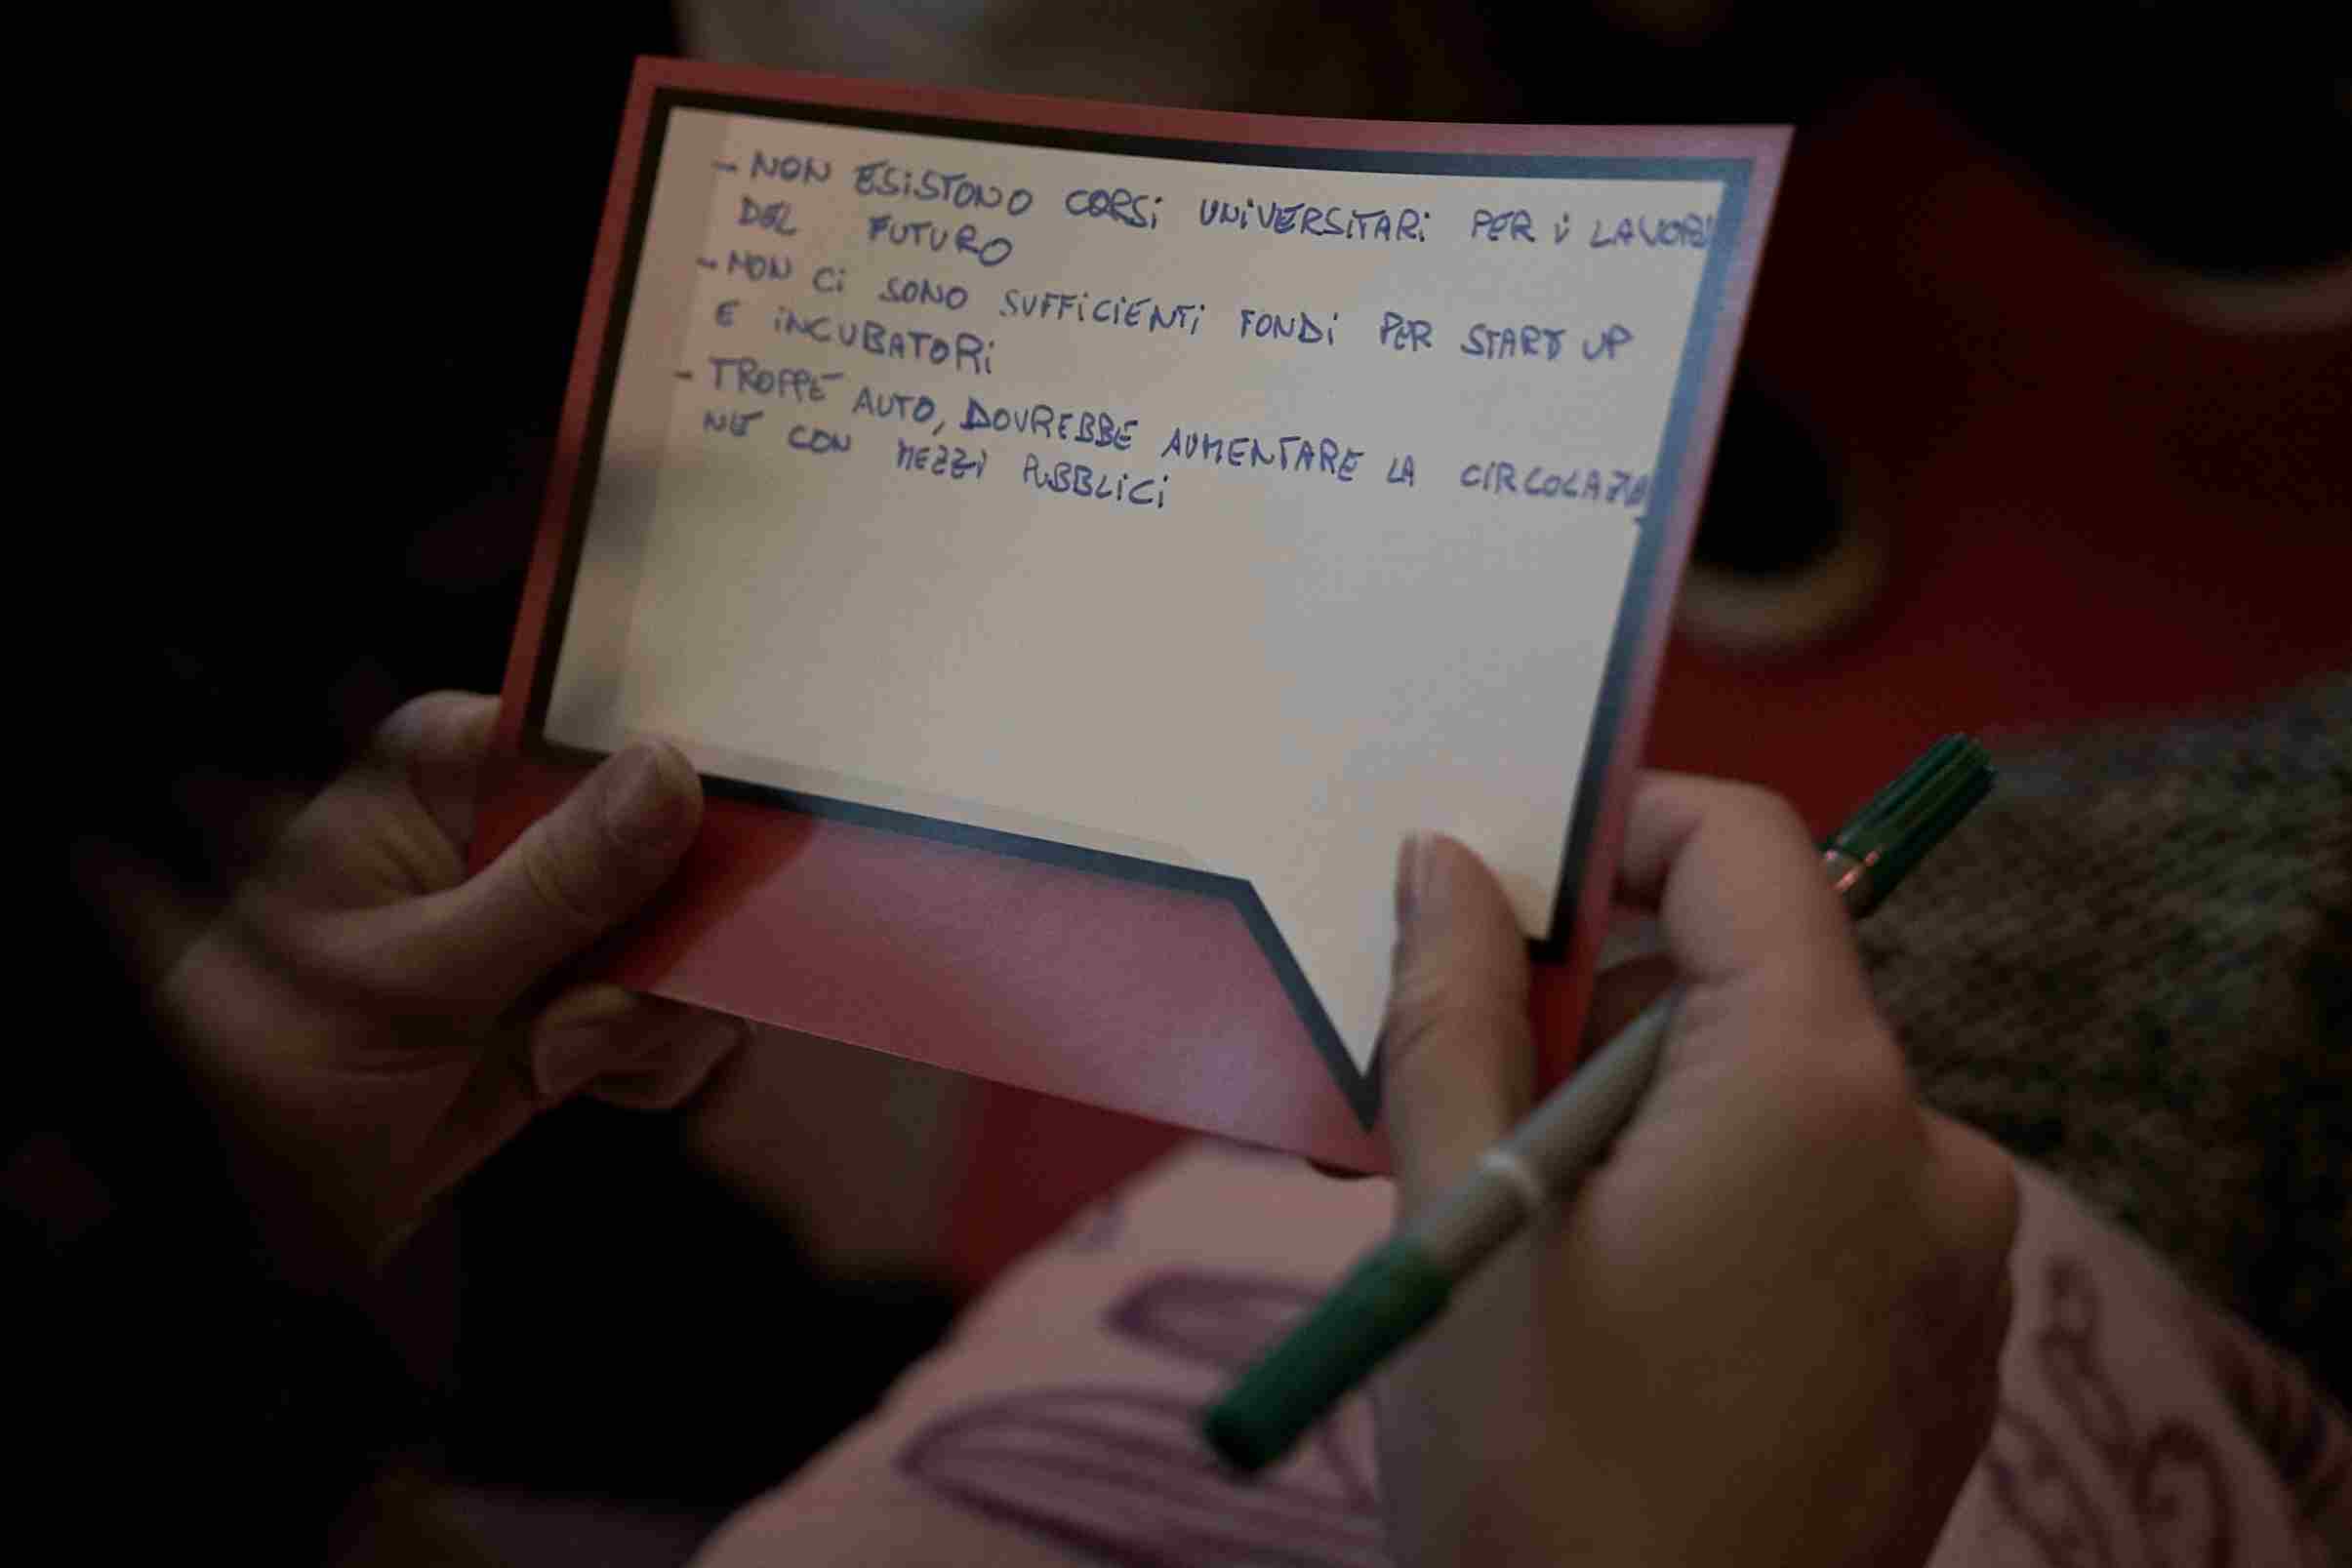 - NON ESISTONO CORSI UNIVERSITARI PER I LAVORI
DEL FUTURO
- NON CI SONO SUFFICIENTI FONDI PER START UP
E INCUBATORI
- TROPPE AUTO, DOVREBBE AUMENTARE LA CIRCOLAZIO
NE CON MEZZI PUBBLICI